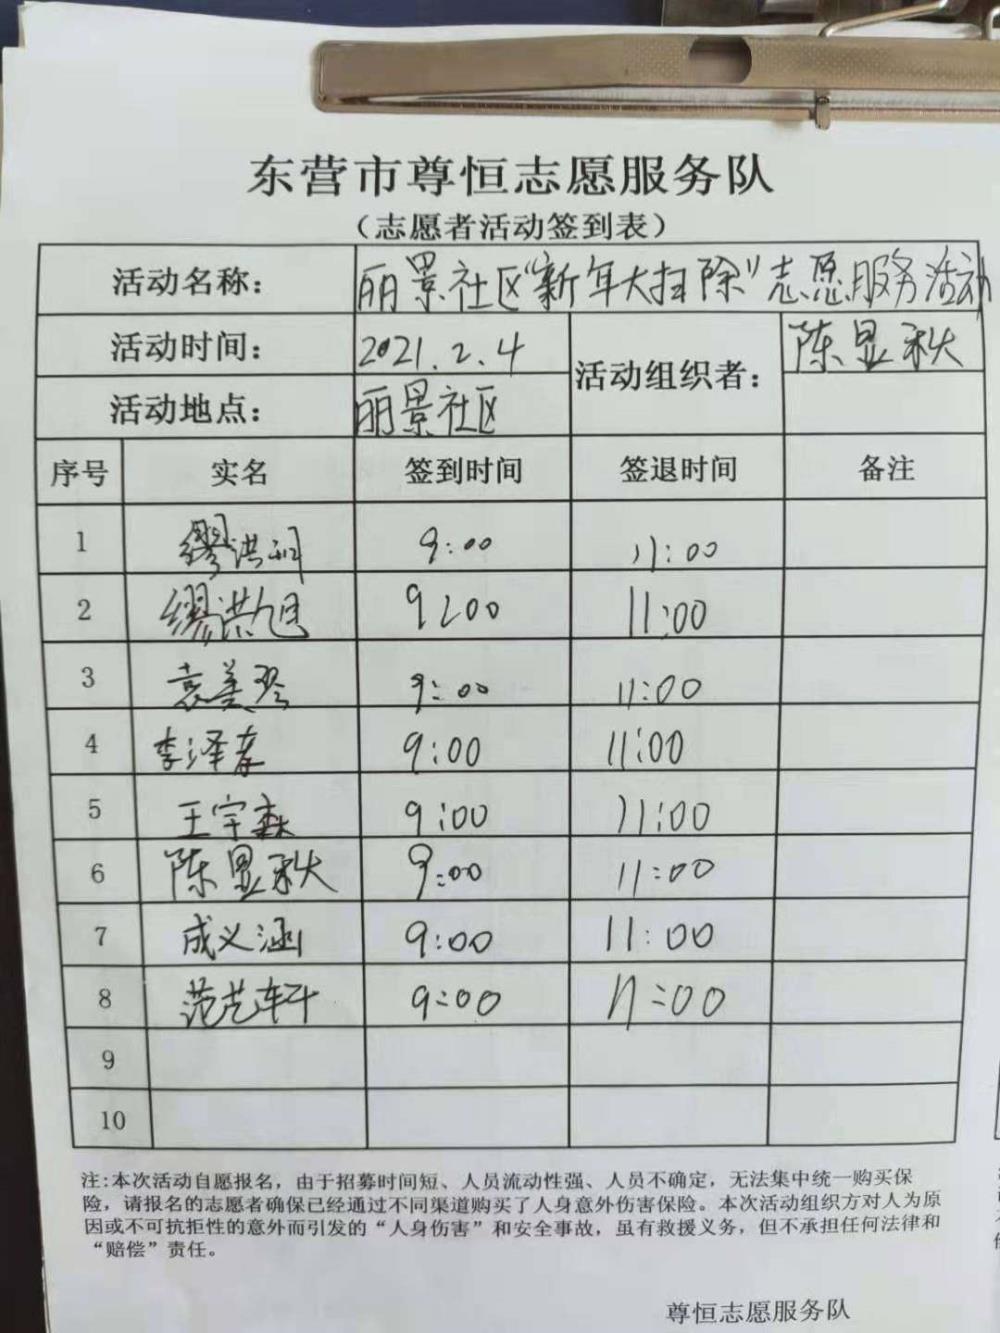 东营市尊恒志愿服务队
（志愿者活动签到表）
活动名称： 丽景社区“新年大扫除”志愿服务活动
活动时间： 2021.2.4 活动组织者： 陈显秋
活动地点： 丽景社区
序号 实名 签到时间 签退时间 备注
1 缪洪 9:00 11:00
2 缪洪旭 9:00 11:00
3 袁美玲 9:00 11:00
4 李泽 9:00 11:00
5 王宇森 9:00 11:00
6 陈显秋 9:00 11:00
7 成义涵 9:00 11:00
8 范艺轩 9:00 11:00
9
10
注:本次活动自愿报名，由于招募时间短、人员流动性强、人员不确定，无法集中统一购买保
险，请报名的志愿者确保已经通过不同渠道购买了人身意外伤害保险。本次活动组织方对人为原
因或不可抗拒性的意外而引发的“人身伤害”和安全事故，虽有救援义务，但不承担任何法律和
“赔偿”责任。
尊恒志愿服务队